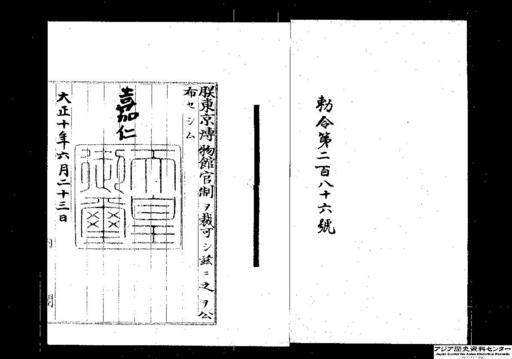 勅令第二百八十六號
朕東京博物館官制ヲ裁可シ茲ニ之ヲ公
布セシム
嘉仁
天皇
御璽
大正十年六月二十三日
内閣
アジア歴史資料センター
Japan Center for Asian Historical Records